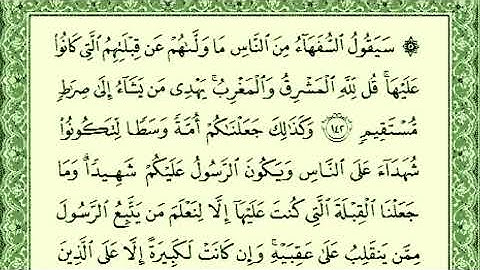 ۞ سَيَقُولُ ٱلسُّفَهَآءُ مِنَ ٱلنَّاسِ مَا وَلَّىٰهُمْ عَن قِبْلَتِهِمُ ٱلَّتِى كَانُوا۟
عَلَيْهَا ۚ قُل لِّلَّهِ ٱلْمَشْرِقُ وَٱلْمَغْرِبُ ۚ يَهْدِى مَن يَشَآءُ إِلَىٰ صِرَٰطٍ
مُّسْتَقِيمٍ ﴿١٤٢﴾ وَكَذَٰلِكَ جَعَلْنَٰكُمْ أُمَّةً وَسَطًا لِّتَكُونُوا۟
شُهَدَآءَ عَلَى ٱلنَّاسِ وَيَكُونَ ٱلرَّسُولُ عَلَيْكُمْ شَهِيدًا ۗ وَمَا
جَعَلْنَا ٱلْقِبْلَةَ ٱلَّتِى كُنتَ عَلَيْهَآ إِلَّا لِنَعْلَمَ مَن يَتَّبِعُ ٱلرَّسُولَ
مِمَّن يَنقَلِبُ عَلَىٰ عَقِبَيْهِ ۚ وَإِن كَانَتْ لَكَبِيرَةً إِلَّا عَلَى ٱلَّذِينَ